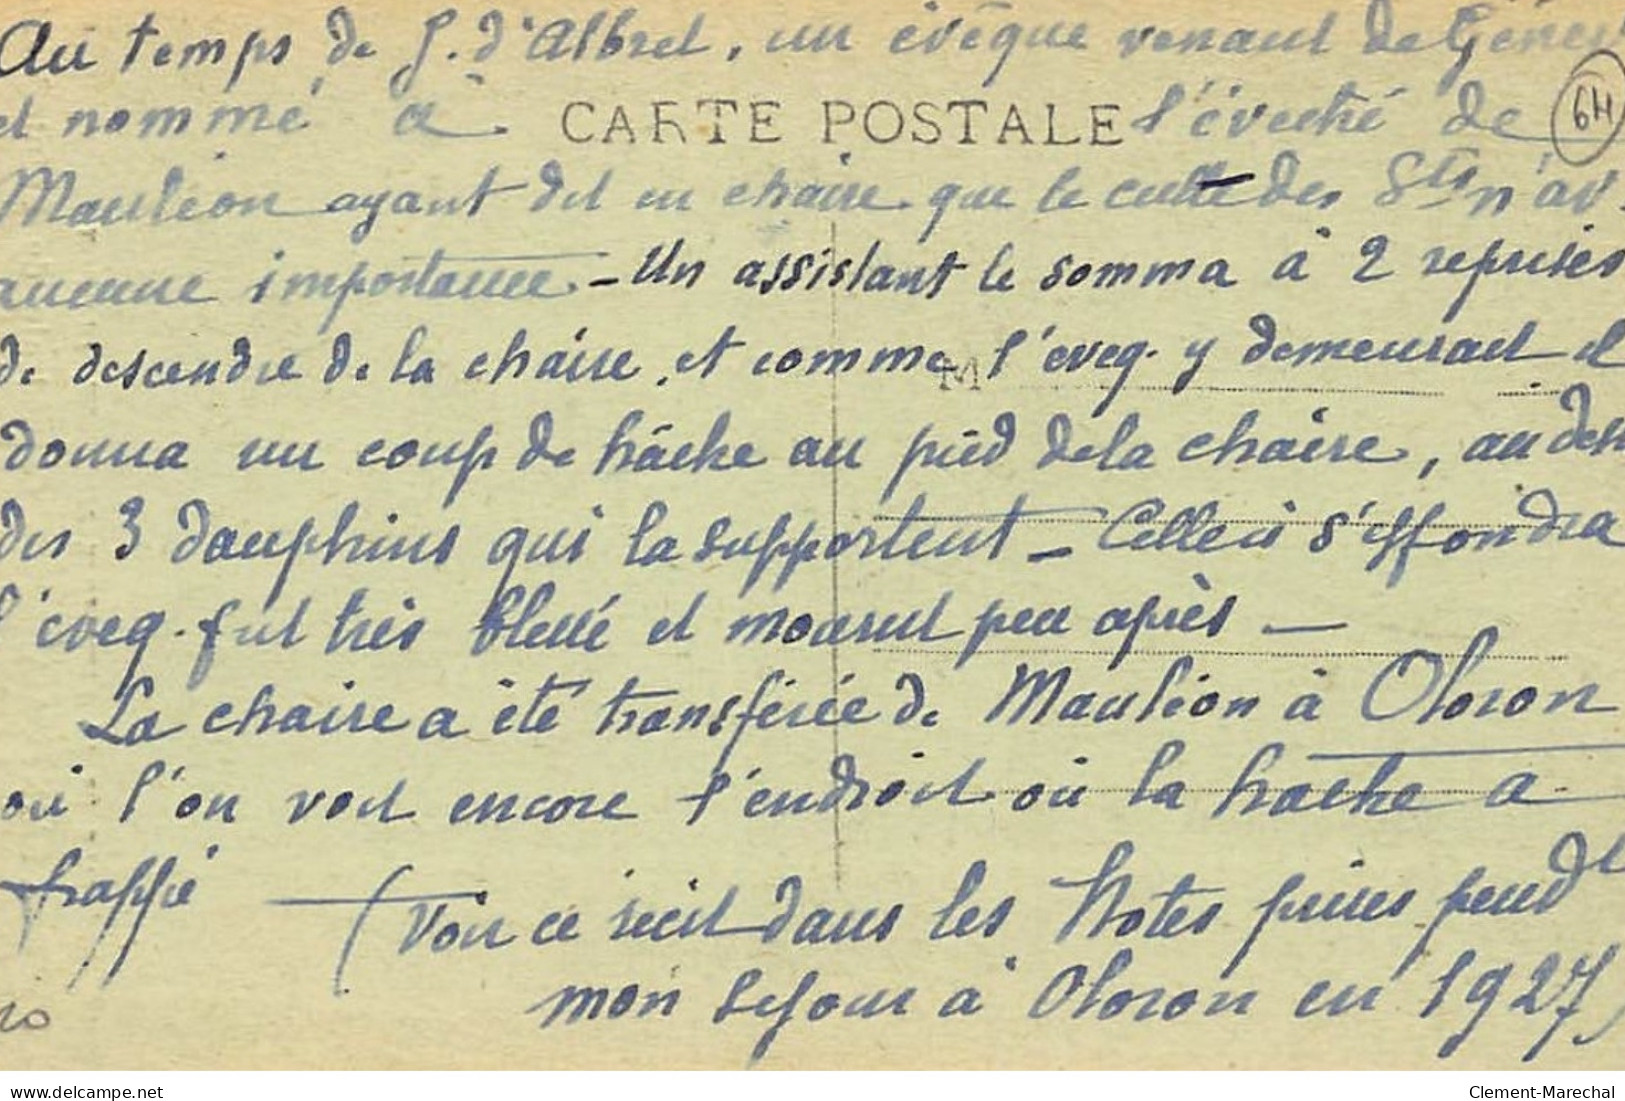 Au temps de J. d'Albret, un évêque venant de Genève
et nommé à CARTE POSTALE l'évêché de 64
Mauléon ayant dit en chaire que le culte des Sts n'av.
aucune importance - Un assistant le somma à 2 reprises
de descendre de la chaire, et comme l'évêq. y demeurait il
M
donna un coup de hâche au pied de la chaire, au dess
des 3 dauphins qui la supportent - Celle ci s'effondra
l'évêq. fut très blessé et mourut peu après -
La chaire a été transférée de Mauléon à Oloron
où l'on voit encore l'endroit où la hache a
frappé (Voir ce récit dans les Notes prises pendt
mon séjour à Oloron en 1927)
www.delcampe.net Clement-Marechal